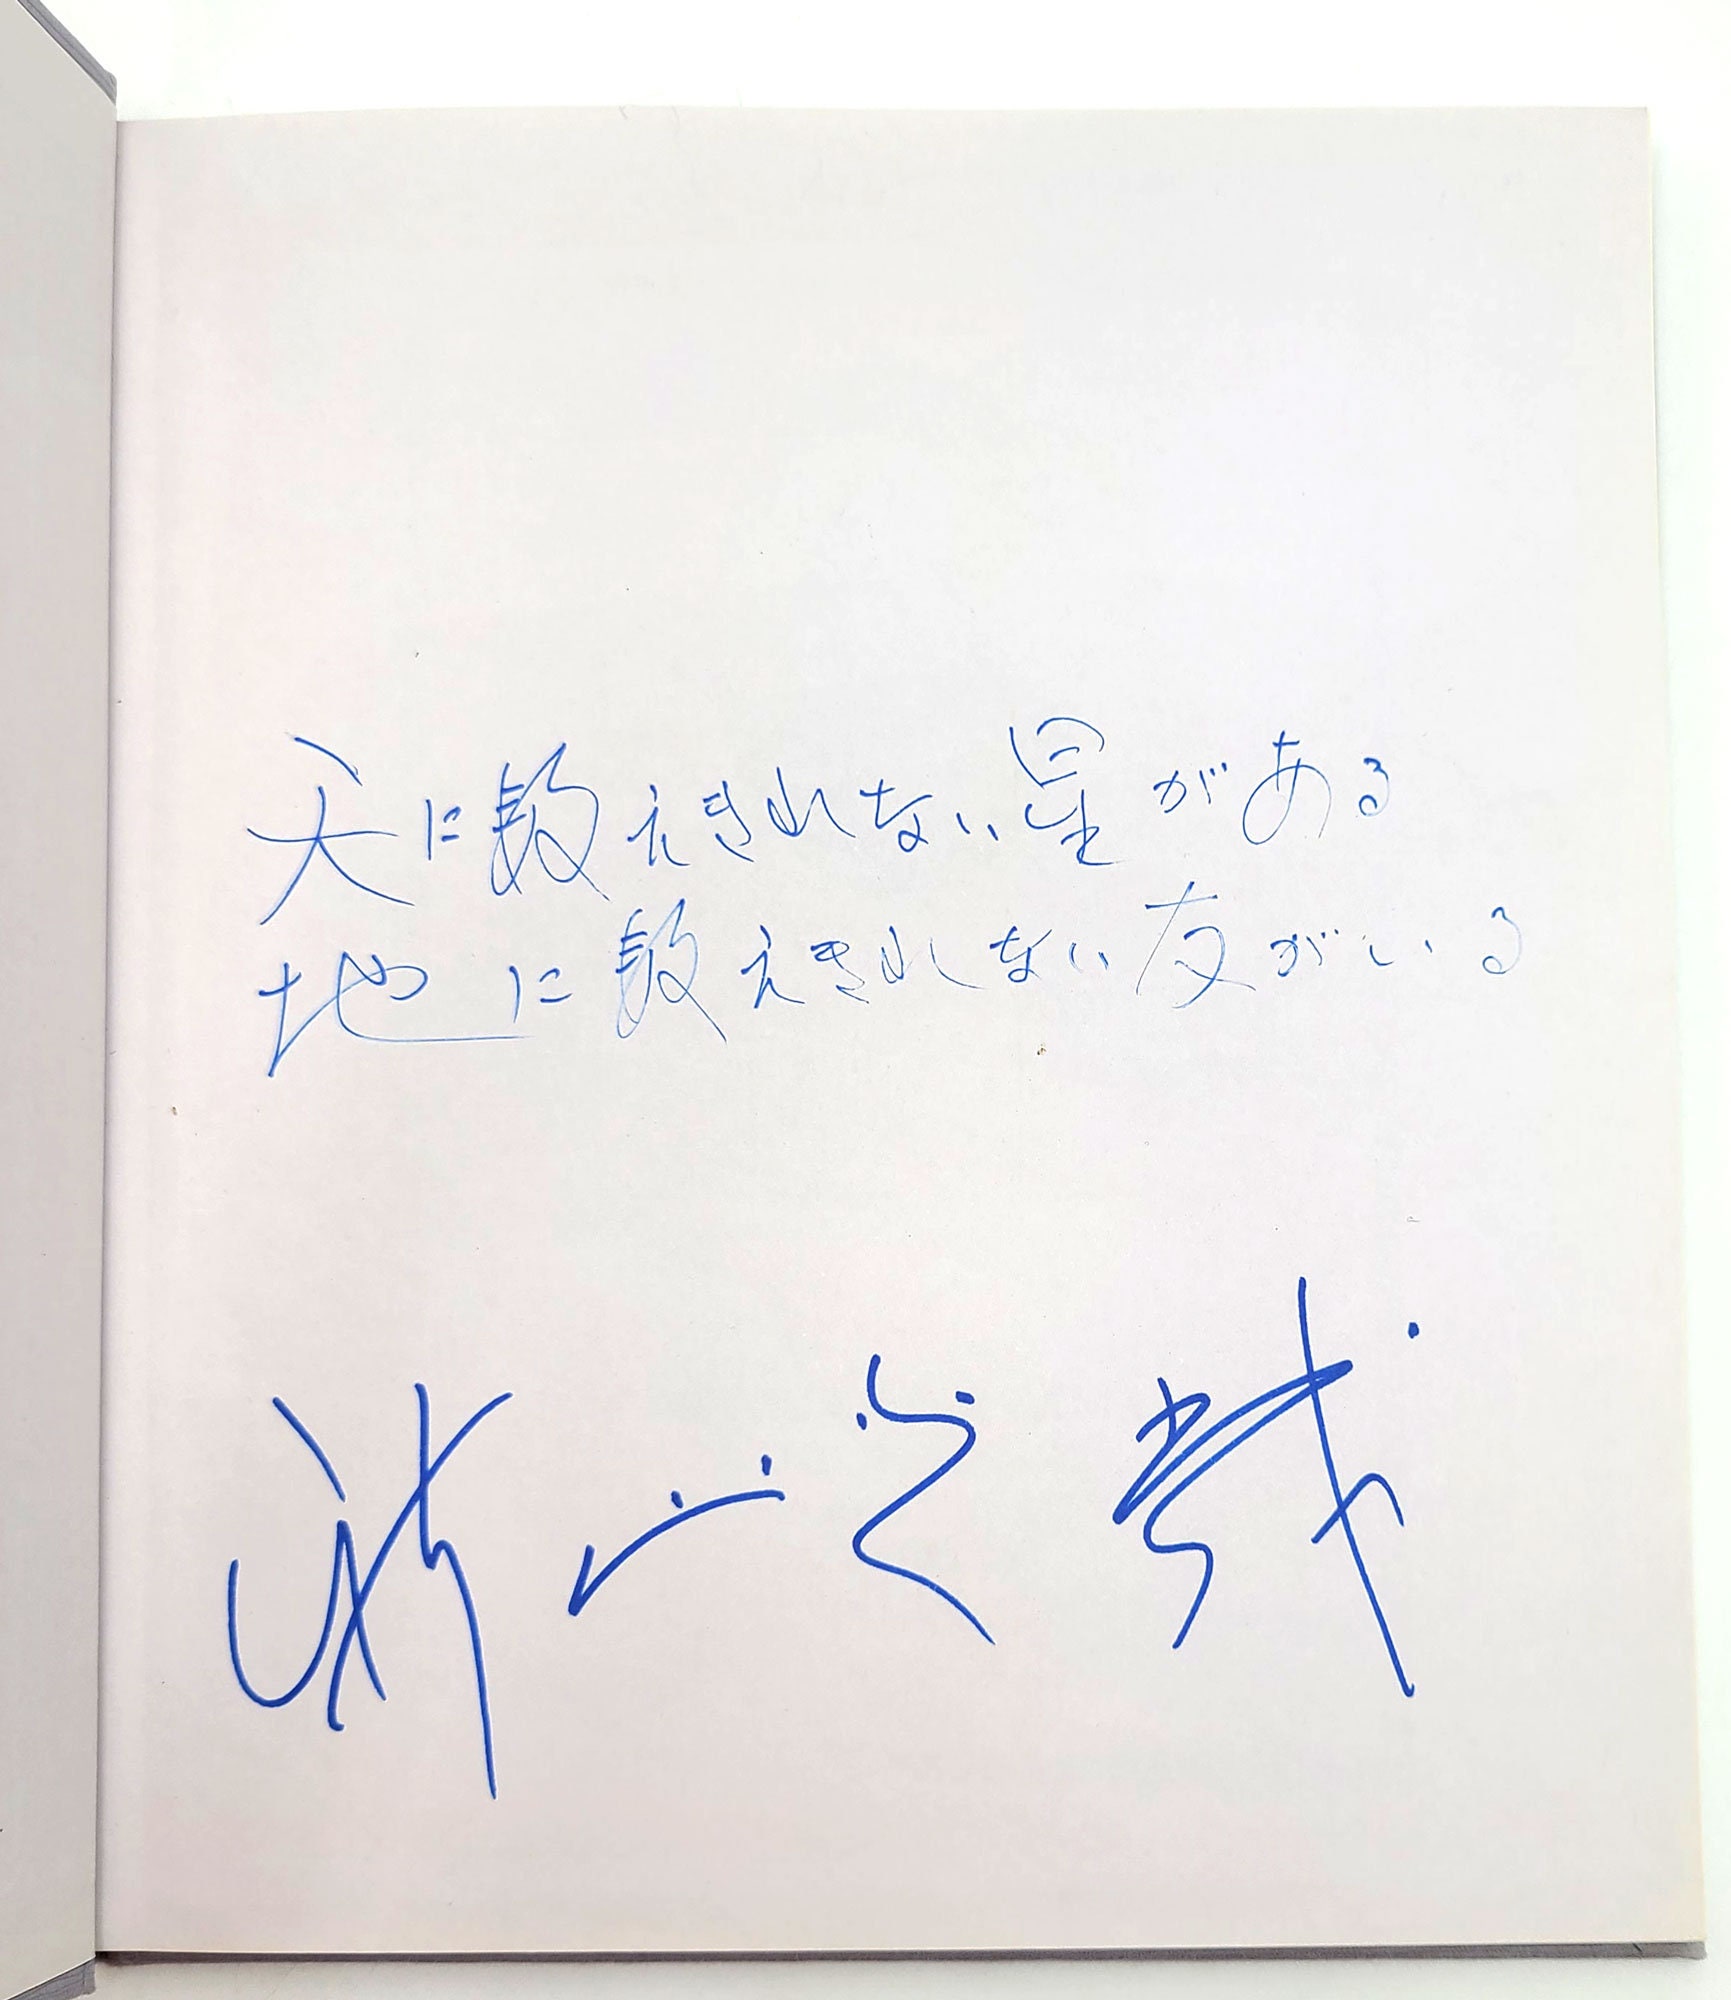 天に数えきれない星がある
地に数えきれない友がいる